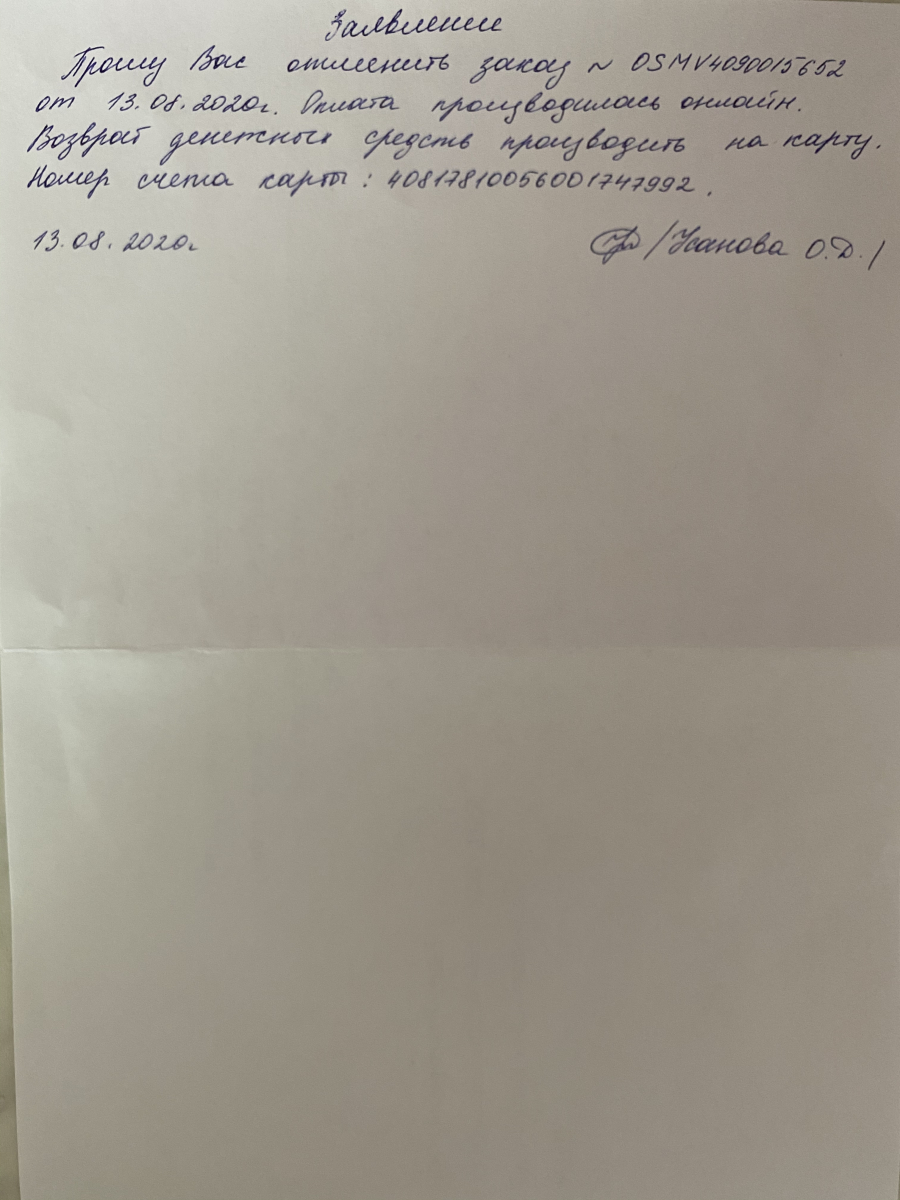 Заявление
Прошу Вас отменить заказ N OSMV4090015652
от 13.08.2020г. Оплата производилась онлайн.
Возврат денежных средств производить на карту.
Номер счета карты: 40817810056001747992.
13.08.2020г /Усанова О.Д./